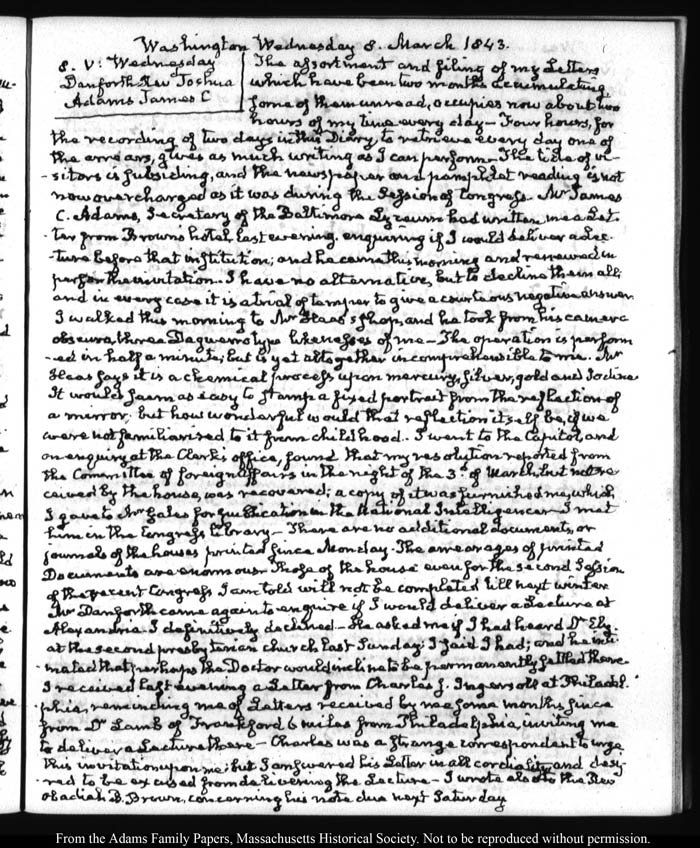 Washington Wednesday 8. March 1843.
8. V: Wednesday
Danforth Rev Joshua
Adams James C
The assortment and filing of my Letters
which have been two months accumulating,
some of them unread, occupies now about two
hours of my time every day — Four hours, for
the recording of two days in this Diary to retrieve every day one of
the arrears, gives as much writing as I can perform — The tide of vi-
-sitors is subsiding, and the newspaper and pamphlet reading is not
now overcharged as it was during the Session of Congress. Mr James
C. Adams, Secretary of the Baltimore Lyceum had written me a Let-
ter from Brown's hotel, last evening, enquiring if I would deliver a Lec-
-ture before that institution; and he came this morning and renewed in
person the invitation. I have no alternative, but to decline them all;
and in every case it is a trial of temper to give a courteous negative answer.
I walked this morning to Mr Haas's shop, and he took from his camera
obscura, three Daguerrotype likenesses of me — The operation is perform
-ed in half a minute; but is yet altogether incomprehensible to me. Mr
Haas says it is a chemical process upon mercury, silver, gold and Iodine
It would seem as easy to stamp a fixed portrait from the reflection of
a mirror; but how wonderful would that reflection itself be, if we
were not familiarised to it from childhood. I went to the Capitol, and
on enquiry at the Clerk's office, found that my resolution reported from
the Committee of foreign affairs in the night of the 3d. of March, but not re
ceived by the house, was recovered; a copy of it was furnished me, which
I gave to Mr Gales for publication in the National Intelligencer. I met
him in the Congress Library — There are no additional documents, or
journals of the houses printed since Monday. The arrearages of printed
Documents are enormous. Those of the house even for the second Session
of the recent Congress I am told will not be completed till next winter
Mr Danforth came again to enquire if I would deliver a Lecture at
Alexandria. I definitively declined — He asked me if I had heard Dr Ely
at the second presbyterian church last Sunday; I said I had; and he inti-
mated that perhaps the Doctor would incline to be permanently settled there
I received last evening a Letter from Charles J. Ingersoll at Philadel-
phia, reminding me of Letters received by me some months since
from Dr Lamb of Frankford 6 miles from Philadelphia, inviting me
to deliver a Lecture there — Charles was a strange correspondent to urge
this invitation upon me; but I answered his Letter in all cordiality and desi-
red to be excused from delivering the Lecture — I wrote also to the Rev
Obadiah B. Brown, concerning his note due next Saturday
From the Adams Family Papers, Massachusetts Historical Society. Not to be reproduced without permission.